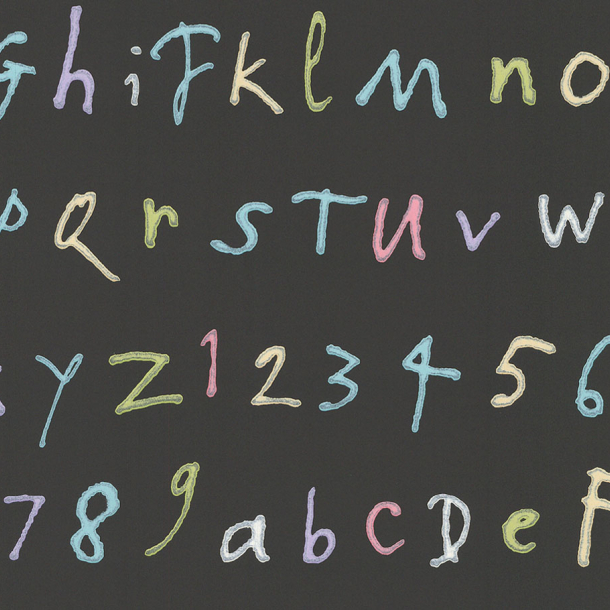 G h i J k l M n o
p Q r S T U v W
y Z 1 2 3 4 5 6
7 8 9 a b c D e F